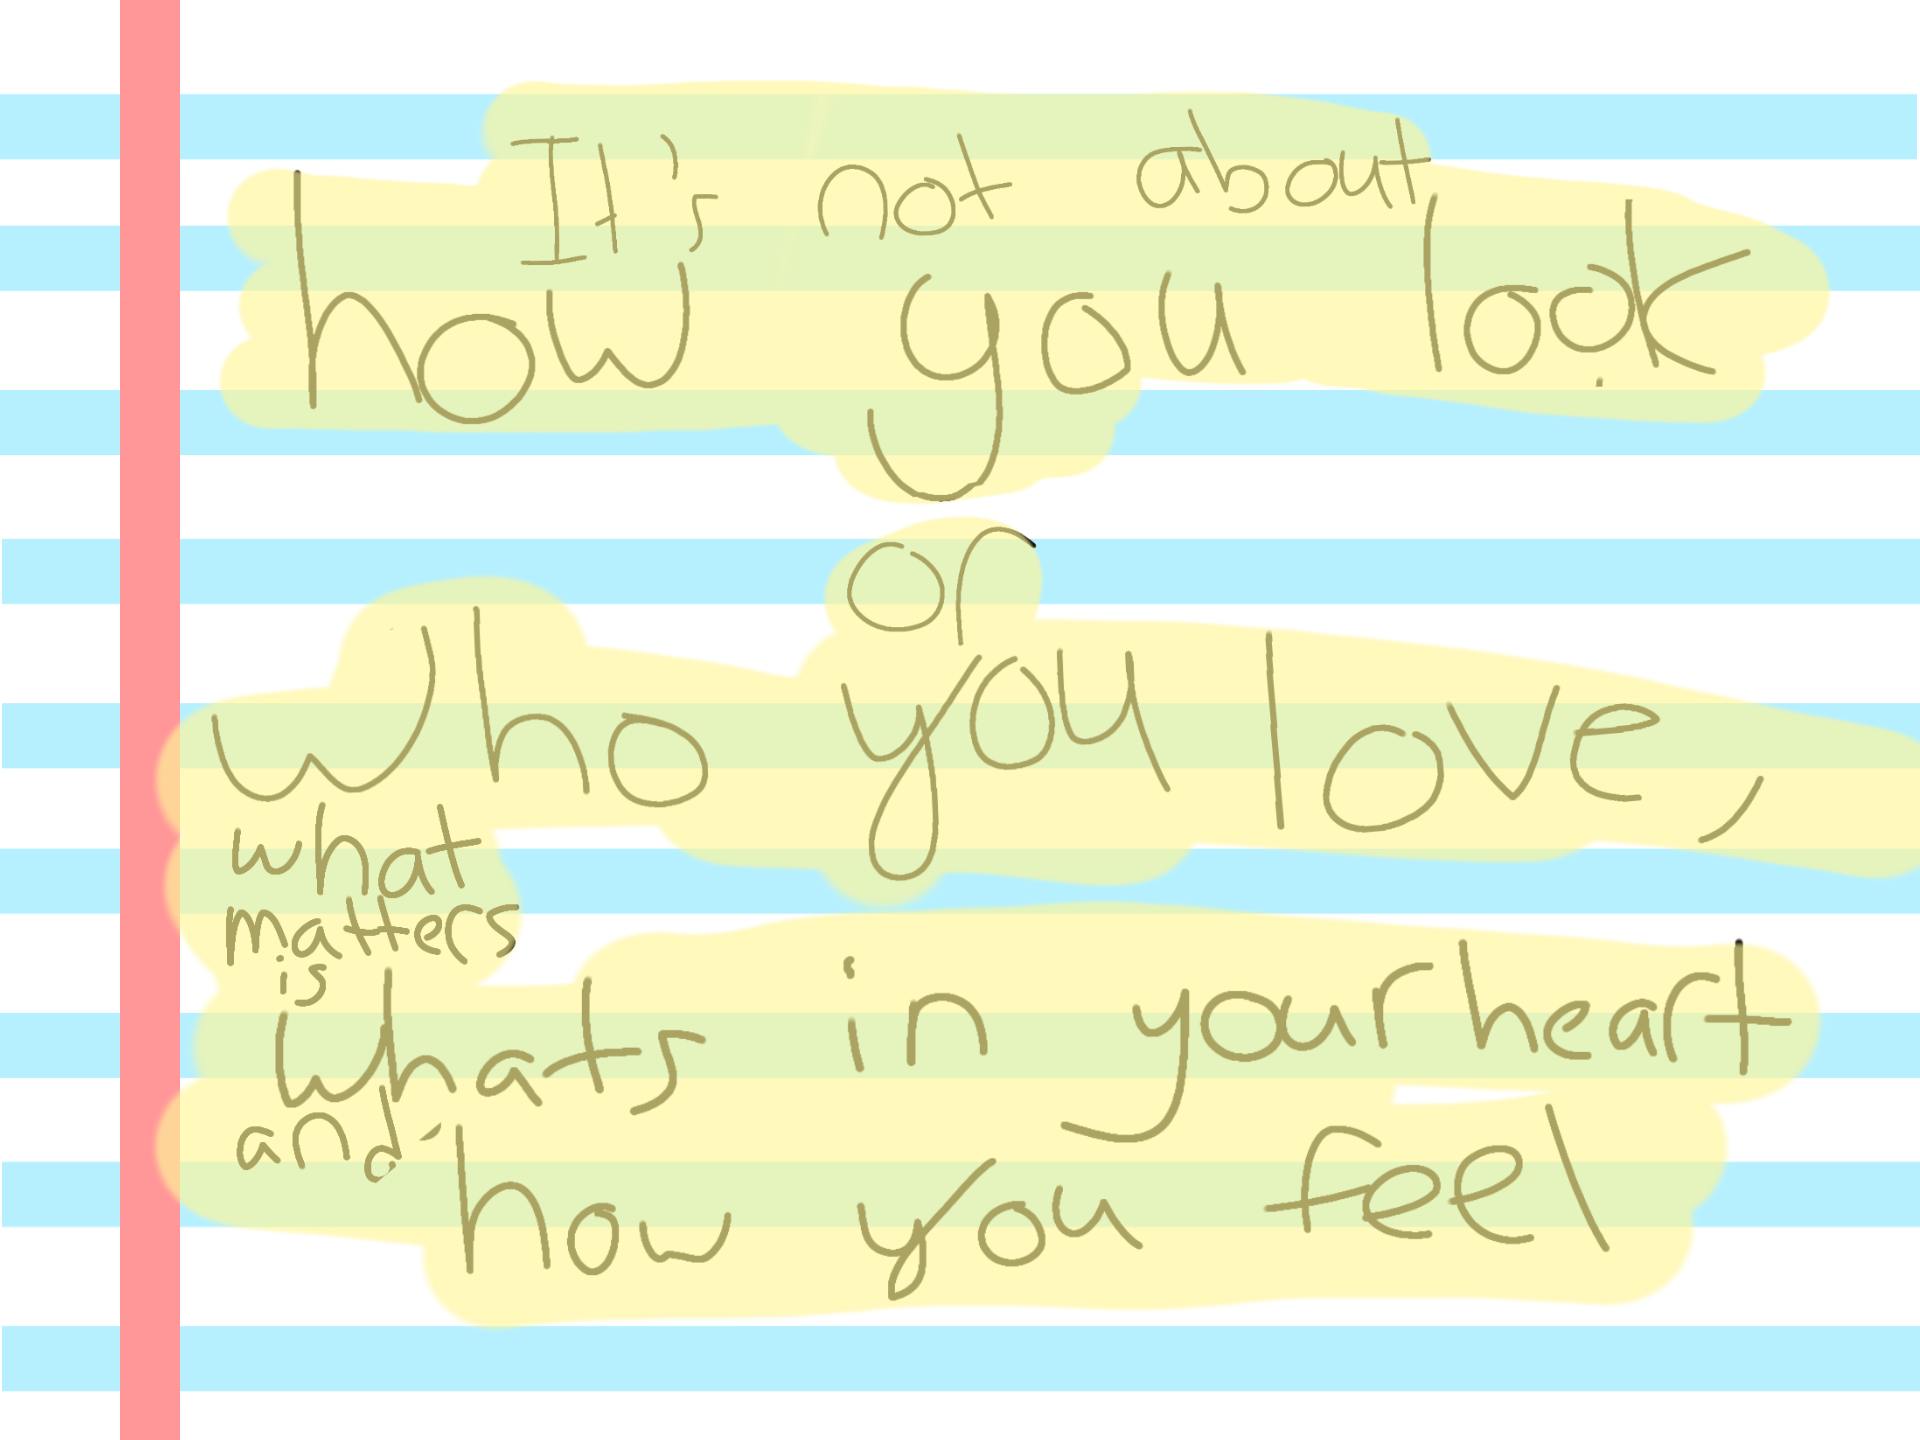 It's not about
how you look
or
who you love,
what
matters
is
whats in your heart
and
how you feel